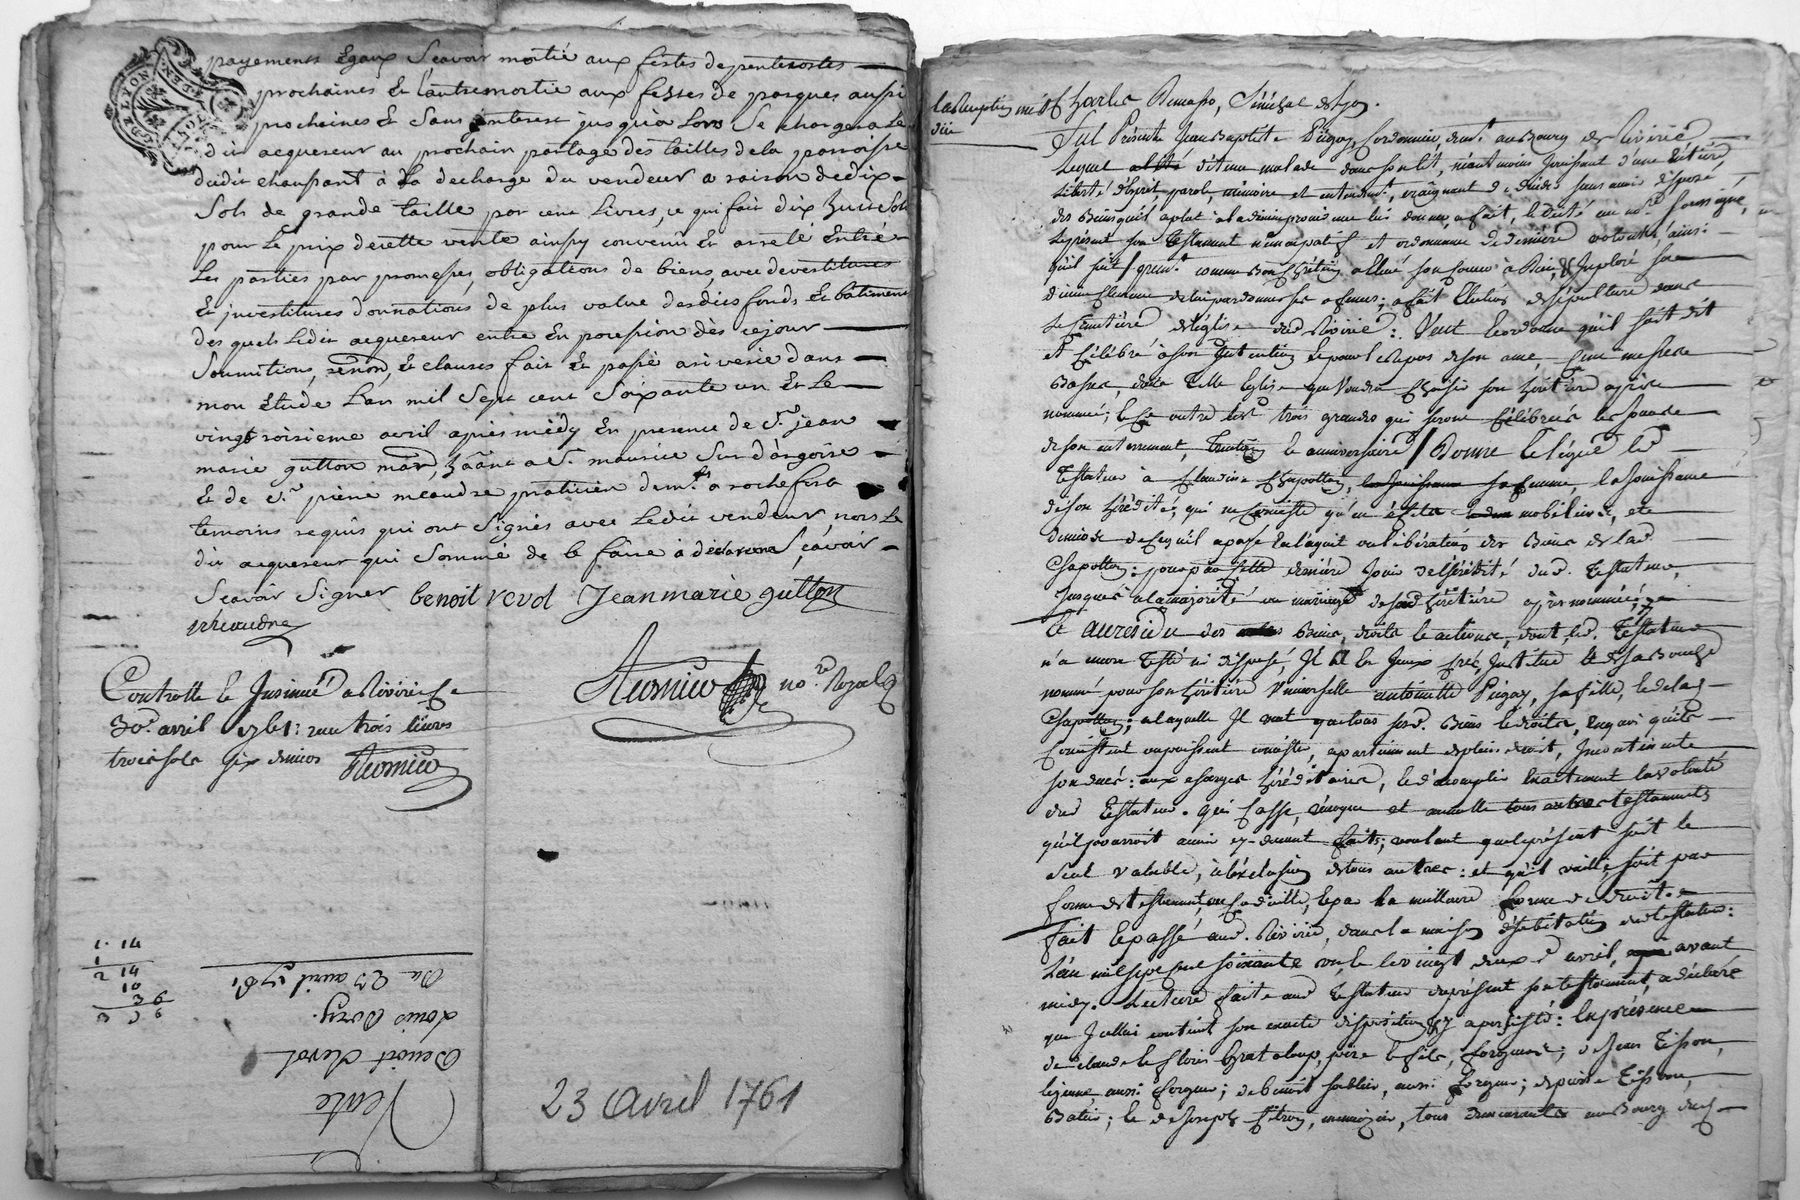 payements Egaux Scavoir moitié aux festes de pentecostes
prochaines Et l'autre moitié aux festes de pasques aussi
prochaines Et Sans interest jusqu'a Lors Se chargera Le
dit acquereur au prochain partage des tailles de la parroisse
dudit chaussant à la decharge du vendeur a raison de dix
Sols de grande taille par cent Livres, ce qui fait dix huit Sols
pour Le prix de cette vente ainsy convenu Et arreté Entre
Les parties par promesses, obligations de biens, avec devestitures
Et jnvestitures donnations de plus value desdits fonds Et batiments
des quels Ledit acquereur entre En possession dès ce jour
Soumitions, renon, Et clauses fait Et passé a riverie dans
mon Etude L'an mil Sept cent Soixante un Et Le
vingt troisieme avril apres midy En presence de Sr jean
marie gutton mard, hâant a St maurice Sur d'argoire
Et de Sr pierre meaudre praticien demt a rochefort
temoins requis qui ont Signés avec Ledit vendeur, non Le
dit acquereur qui Sommé de le faire à déclaré ne Sçavoir
Scavoir Signer benoit revol Jean marie gutton
Meaudre
no.re Royal
Controllé Et Jnsinué a Riverie Le
30e avril 1761: reçu trois livres
trois sols six deniers
1. 14
1
2 14
10
3 6
3 3 6
Vente
Benoit Revol
Louis
Du 23 avril 1761
23 avril 1761
Charles
Fut Présent Jean Baptiste Pugay, Cordonnier, demt au Bourg de Riverie
Lequel détenu malade dans son lit, néantmoins jouissant d'une Entière
liberté d'esprit, parole, mémoire et entendemt, craignant de décéder sans avoir disposé
des Biens qu'il a plut à la divine providence lui donner, a fait, & dicté au nore soussigné,
le présent son testament nuncupatif et ordonnance de dernière volonté, ainsi
qu'il suit / premt comme Bon Chrétien a Elevé son coeur à Dieu, & Imploré sa
divine Clemence de lui pardonner ses offenses; a fait Election de sépulture dans
le Cimetière de l'Eglise dud Riverié: Veut & ordonne qu'il soit dit
et célébré à son Intention & pour le repos de son ame, Cinq messes
Basses, dans telle Eglise que voudra choisir son héritière après
nommée; & Ce outre les trois grandes qui seront Célébrées les jours
de son enterrement, & anniversaire / Donne & légue led
Testateur à Claudine Chapotton, sa femme, la jouissance
de son hérédité, qui ne Consiste qu'en effets mobiliers, et
Chapotton: pour par cette dernière Jouir de l'hérédité dud. Testateur,
jusques à la majorité ou mariage de son héritière après nommée;
Et au résidu des Biens, droits & actions, dont led. Testateur
n'a encore Testé ni disposé, Il a Institué & de sa Bouche
nommé pour son héritière Universelle antoinette Pugay, sa fille, & de lad
Chapotton; a laquelle Il veut que tous sesd. Biens & droits, en quoi qu'ils
Consistent ou puissent consister, apartiennent de plein droit, Incontinent
son décès: aux charges héréditaires, & d'accomplir Exactement la volonté
dud Testateur. qui Casse, révoque et annulle tous autres testaments
qu'il pourroit avoir cy-devant faits; voulant que le présent soit le
seul valable, à l'exclusion de tous autres: et qu'il vaille, soit par
forme de testament, ou Codicille, & par la meilleure forme de droit.
Fait & passé aud. Riverié, dans la maison d'habitation dud testateur:
L'an mil sept cent soixante un, & le vingt deux avril, avant
midy. Lecture faite aud Testateur du présent son testament, a déclaré
que Icellui contient son exacte disposition, & y a persisté: En présence
de Claude & Fleuris Grataloup, père & fils, forgeurs; de Jean Tisson,
aussi forgeur; de Benoit aussi forgeur; de pierre Tisson,
Batie; & de Joseph tous demeurants au Bourg dud